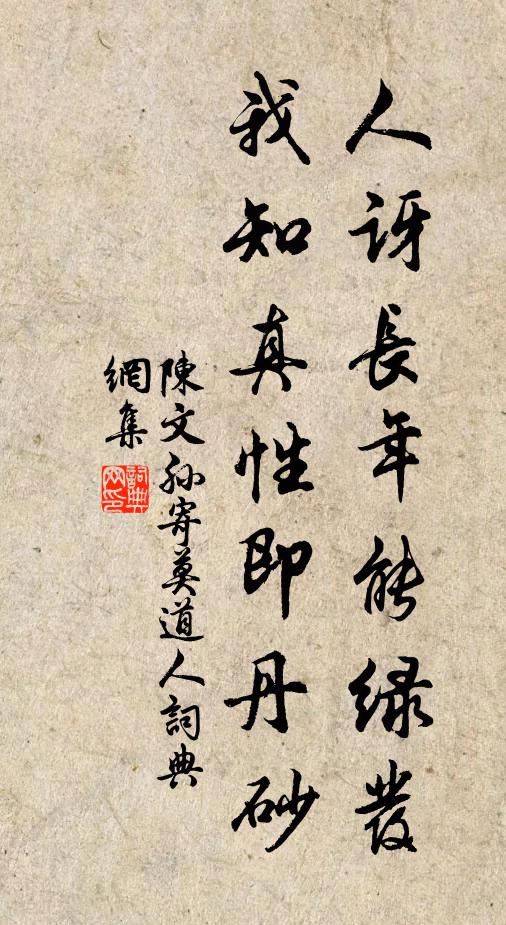 人訝長年能綠發
我知真性即丹砂
陳文孫寄莫道人詞典
網集
詞典
网印